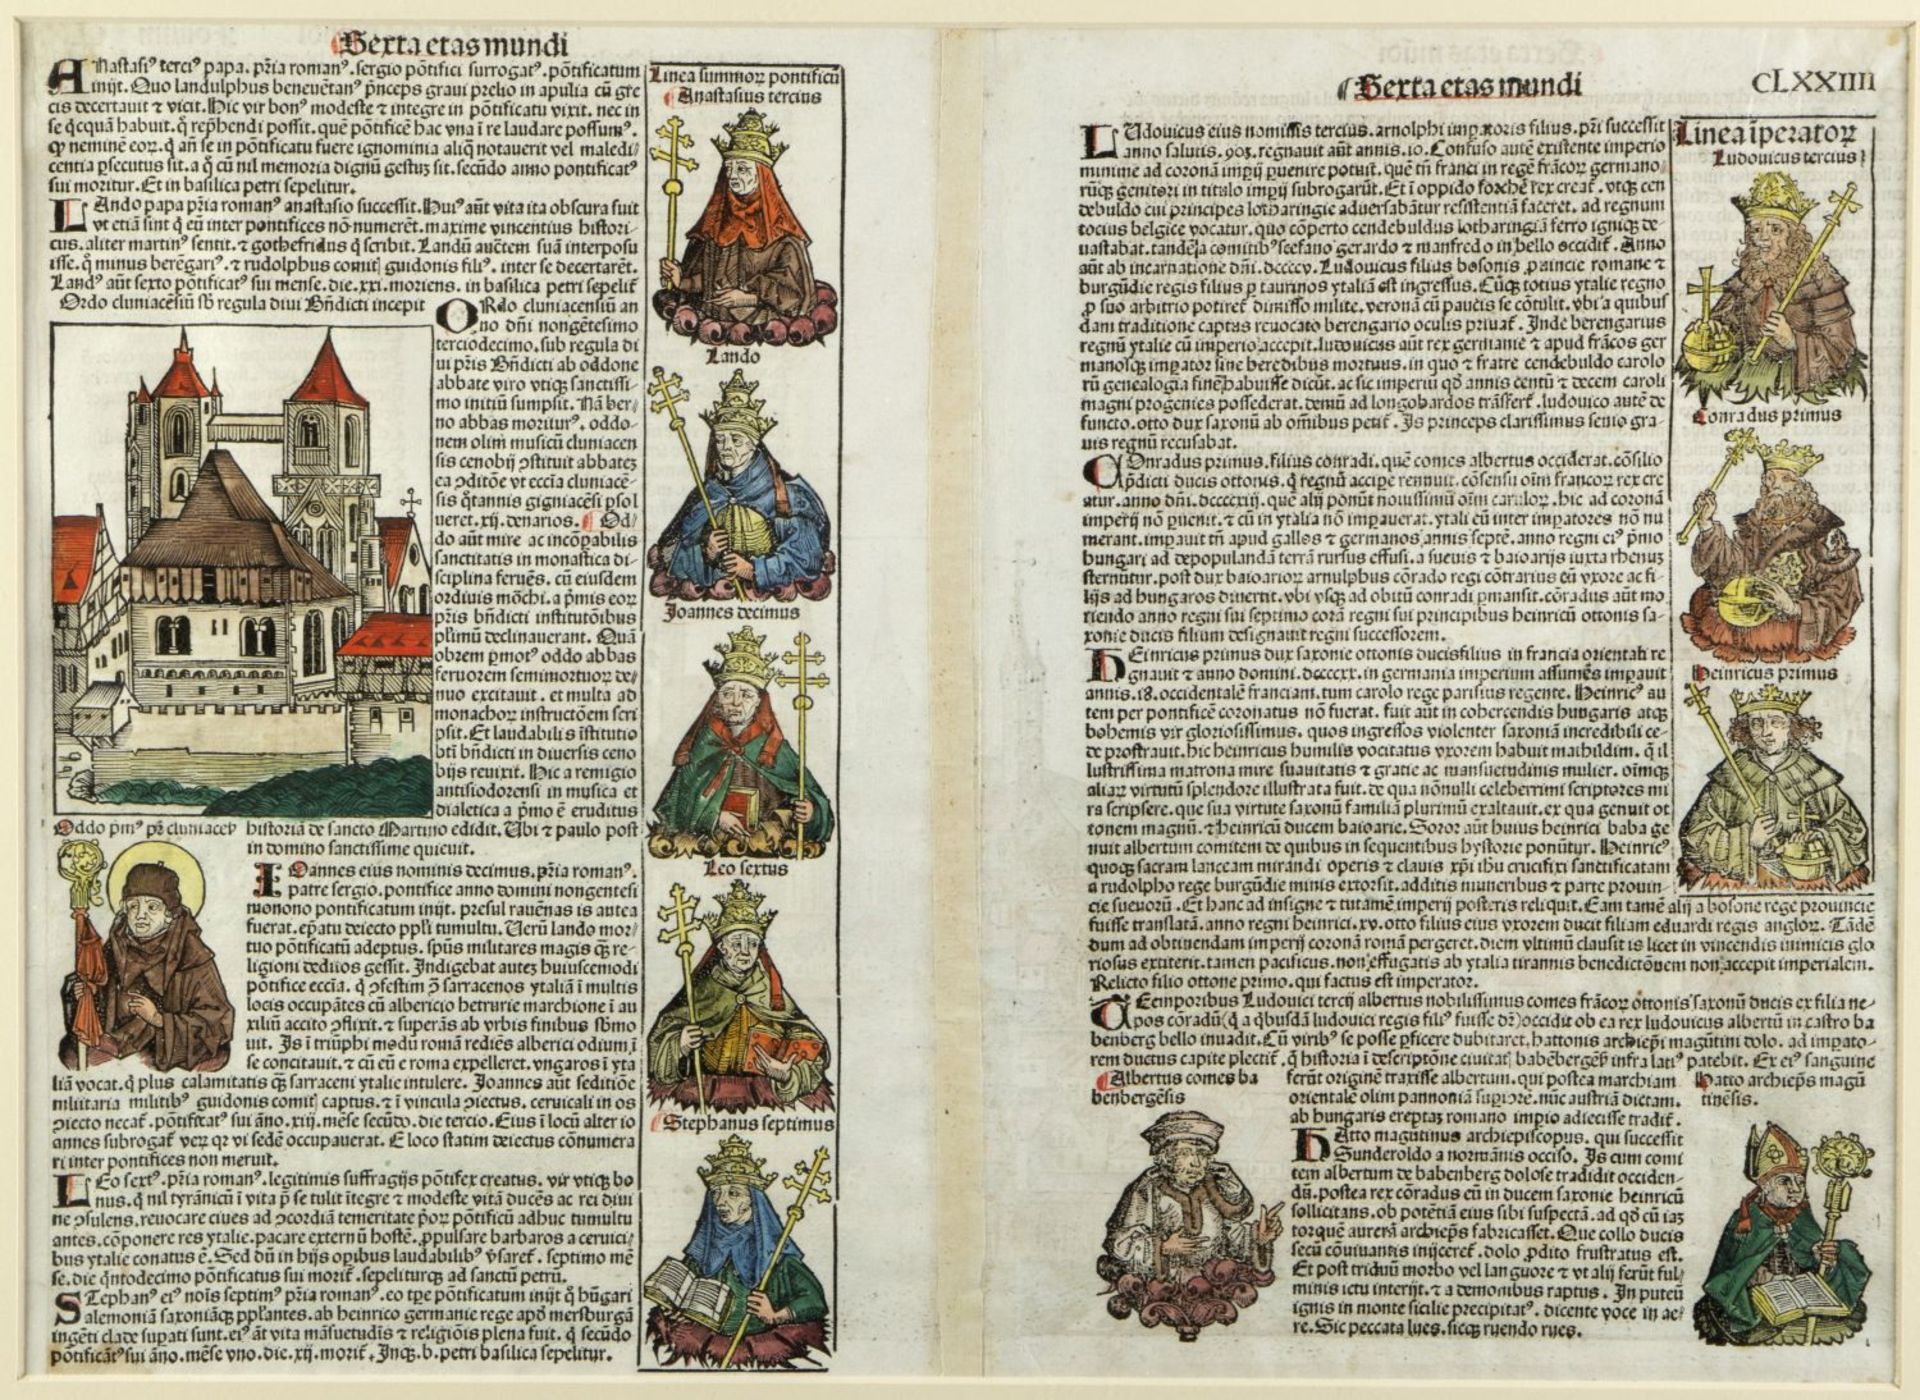 Sexta etas mundi
ANastasiꝰ terciꝰ papa. pr̃ia romanꝰ. sergio põtifici surrogatꝰ. põtificatum
inijt. Quo landulphus beneuẽtanꝰ p̃nceps graui prelio in apulia cũ gre
cis decertauit ⁊ vicit. Hic vir bonꝰ modeste ⁊ integre in põtificatu vixit. nec in
se q̃cquã habuit. q̃ rep̃hendi possit. quẽ põtificẽ hac vna ĩ re laudare possumꝰ.
ꝙ neminẽ eoꝝ. q̃ añ se in põtificatu fuere ignominia aliq̃ notauerit vel maledi
centia ꝑsecutus sit. a q̃ cũ nil memoria dignũ gestuꝫ sit. secũdo anno pontificatꝰ
sui moritur. Et in basilica petri sepelitur.
LAndo papa pr̃ia romanꝰ anastasio successit. Huiꝰ aũt vita ita obscura fuit
vt etiam sint q̃ eũ inter pontifices nõ numerẽt. maxime vincentius histori⸗
cus. aliter martinꝰ sentit. ⁊ gothefridus q̃ scribit. Landũ auẽtem suã interposu
isse. q̃ minus berẽgariꝰ. ⁊ rudolphus comit̃ guidonis filiꝰ. inter se decertarẽt.
Landꝰ aũt sexto põtificatꝰ sui mense. die. xxi. moriens. in basilica petri sepelit̃
Ordo cluniacẽsiũ sb̃ regula diui Bñdicti incepit
ORdo cluniacensiũ an
no dñi nongẽtesimo
terciodecimo. sub regula di
ui pr̃is Bñdicti ab oddone
abbate viro vtiqꝫ sanctissi⸗
mo initiũ sumpsit. Nã ber⸗
no abbas moriturꝰ. oddo⸗
nem olim musicũ cluniacen
sis cenobij ꝯstituit abbateꝫ
ea ꝯditõe vt eccĩa cluniacẽ⸗
sis q̃tannis gigniacẽsi ꝑsol
ueret. xij. denarios. Od⸗
do aũt mire ac incõꝑabilis
sanctitatis in monastica di⸗
sciplina feruẽs. cũ eiusdem
ordiuis mõchi. a p̃mis eoꝝ
pr̃is bñdicti institutõibus
pl̃imũ declinauerant. Quã
obrem p̃motꝰ oddo abbas
feruorem semimortuoꝝ de⸗
nuo excitauit. et multa ad
monachoꝝ instructõem scri
psit. Et laudabilis ĩstitutio
bt̃i bñdicti in diuersis ceno
bijs reuixit. Hic a remigio
antisiodorensi in musica et
dialetica a p̃mo ẽ eruditus
historia de sancto Martino edidit. Vbi ⁊ paulo post
in domino sanctissime quieuit.
Oddo p̃mꝰ pr̃ cluniaceñ
IOannes eius nominis decimus. pr̃ia romanꝰ.
patre sergio. pontifice anno domini nongentesi
monono pontificatum inijt. presul rauẽnas is antea
fuerat. ep̃atu deiecto ppl̃i tumultu. Verũ lando mor⸗
tuo põtificatũ adeptus. sp̃us militares magis q̃ꝫ re⸗
ligioni deditos gessit. Indigebat auteꝫ huiuscemodi
põtifice eccĩa. q̃ ꝯfestim p̃ sarracenos ytaliã ĩ multis
locis occupãtes cũ albericio hetrurie marchione ĩ au
xiliũ accito ꝯflixit. ⁊ superãs ab vrbis finibus sb̃mo
uit. Is ĩ triũphi modũ romã rediẽs alberici odium. ĩ
se concitauit. ⁊ cũ eũ e roma expelleret. vngaros ĩ yta
liã vocat. q̃ plus calamitatis q̃ꝫ sarraceni ytalie intulere. Joannes aũt seditiõe
militaria militibꝰ guidonis comit̃ captus. ⁊ ĩ vincula ꝯiectus. ceruicali in os
ꝯiecto necat̃. põtificatꝰ sui ãno. xiij. mẽse secũdo. die tercio. Eius ĩ locũ alter io
annes subrogat̃ veꝝ qꝛ vi sedẽ occupauerat. E loco statim deiectus cõnumera
ri inter pontifices non meruit.
LEo sextꝰ. pr̃ia romanꝰ. legitimis suffragijs põtifex creatus. vir vtiqꝫ bo
nus. q̃ nil tyrãnicũ ĩ vita p̃ se tulit ĩtegre ⁊ modeste vitã ducẽs ac rei diui
ne ꝯsulens. reuocare ciues ad ꝯcordiã temeritate p̃oꝝ põtificũ adhuc tumultu
antes. cõponere res ytalie. pacare externũ hostẽ. ꝓpulsare barbaros a ceruici⸗
bus ytalie conatus ẽ. Sed dũ in hijs oꝑibus laudabilibꝰ v̓saret̃. septimo mẽ
se. die q̃ntodecimo põtificatus sui morit̃. sepeliturqꝫ ad sanctũ petrũ.
STephanꝰ eiꝰ nois septimꝰ pr̃ia romanꝰ. eo tp̃e põtificatum inijt q̃ hũgari
salemoniã saxoniãqꝫ ppl̃antes. ab heinrico germanie rege apõ mersburgã
ingẽti clade suꝑati sunt. eiꝰ ãt vita mãsuetudĩs ⁊ religiõis plena fuit. q̃ secũdo
põtificãtꝰ sui ãno. mẽse vno. die. xij. morit̃. Inqꝫ. b. petri basilica sepelitur.
Linea summoꝝ pontificũ
Anastasius tercius
Lando
Joannes decimus
Leo sextus
Stephanus septimus
Sexta etas mundi
CLXXIIII
LVdouicus eius nomĩis tercius. arnolphi imꝑatoris filius. pr̃i successit
anno salutis. 903. regnauit aũt annis. 10. Confuso autẽ existente imperio
minime ad coronam imꝑij ꝑuenire potuit. quẽ tñ franci in regẽ frãcoꝝ germano⸗
rũqꝫ genitori in titulo imꝑij subrogarũt. Et ĩ oppido forchẽ rex creat̃. vtqꝫ cen
debuldo cui principes lotharingie aduersabãtur resistentiã faceret. ad regnum
tocius belgice vocatur. quo cõperto cendebuldus lotharingiã ferro igniqꝫ de⸗
uastabat. tandẽ a comitibꝰ stefano gerardo ⁊ manfredo in bello occidit̃. Anno
aũt ab incarnatione dñi. dccccv. Ludouicus filius bosonis ꝓuincie romane ⁊
burgũdie regis filius ꝑ taurinos ytaliã est ingressus. Cũqꝫ totius ytalie regno
ꝓ suo arbitrio potiret̃ dimisso milite. veronã cũ paucis se cõtulit. vbi a quibus
dam traditione captus reuocato berengario oculis priuat̃. Inde berengarius
regnũ ytalie cũ imperio accepit. ludouicus aũt rex germanie ⁊ apud frãcos ger
manosqꝫ imꝑator sine heredibus mortuus. in quo ⁊ fratre cendebuldo carolo
rũ genealogia finẽ habuisse dicũt. ac sic imperiũ qd̃ annis centũ ⁊ decem caroli
magni progenies possederat. demũ ad longobardos trãsfert̃. ludouico autẽ de
functo. otto dux saxonũ ab om̃ibus petit̃. Is princeps clarissimus senio gra⸗
uis regnũ recusabat.
COnradus primus. filius conradi. quẽ comes albertus occiderat. cõsilio
p̃dicti ducis ottonis. q̃ regnũ acciꝑe rennuit. cõsensu oĩm francoꝝ rex cre
atur. anno dñi. dccccxiij. quẽ alij ponũt nouissimũ oĩm caruloꝝ. hic ad coronã
imperij nõ ꝑuenit. ⁊ cũ in ytalia nõ imꝑauerat. ytali eũ inter imꝑatores nõ nu
merant. imꝑauit tñ apud gallos ⁊ germanos annis septẽ. anno regni eiꝰ p̃mo
hungari ad depopulandã terrã rursus effusi. a sueuis ⁊ baioarijs iuxta rhenuꝫ
sternũtur. post dux baioarioꝝ arnulphus cõrado regi cõtrarius cũ vxore ac fi⸗
lijs ad hungaros diuertit. vbi vsqꝫ ad obitũ conradi ꝑmansit. cõradus aũt mo
riendo anno regni sui septimo corã regni sui principibus heinricũ ottonis sa⸗
xonie ducis filium designauit regni successorem.
HEinricus primus dux saxonie ottonis ducis filius in francia orientali re
gnauit ⁊ anno domini. dccccxx. in germania imperium assumẽs imꝑauit
annis. 18. occidentalẽ franciam. tum carolo rege parisius regente. Heinricꝰ au
tem per pontificẽ coronatus nõ fuerat. fuit aũt in cohercendis hungaris atqꝫ
bohemis vir gloriosissimus. quos ingressos violenter saxoniã incredibili ce⸗
de prostrauit. hic heinricus humilis vocitatus vxorem habuit mathildim. q̃ il
lustrissima matrona mire suauitatis ⁊ gratie ac mansuetudinis mulier. oĩmqꝫ
aliaꝝ virtutũ splendore illustrata fuit. de qua nõnulli celeberrimi scriptores mi
ra scripsere. que sua virtute saxonũ familiã plurimũ exaltauit. ex qua genuit ot
tonem magnũ. ⁊ heinricũ ducem baioarie. Soror aũt huius heinrici baba ge
nuit albertum comitem de quibus in sequentibus hystorie ponũtur. Heinricꝰ
quoqꝫ sacram lanceam mirandi operis ⁊ clauis xp̃i ihu crucifixi sanctificatam
a rudolpho rege burgũdie minis extorsit. additis muneribus ⁊ parte prouin⸗
cie sueuorũ. Et hanc ad insigne ⁊ tutamẽ imperij posteris reliquit. Eam tamẽ alij a bosone rege prouincie
fuisse translatã. anno regni heinrici. xv. otto filius eius vxorem ducit filiam eduardi regis angloꝝ. Tãdẽ
dum ad obtinendam imperij coronã romã pergeret. diem vltimũ clausit is licet in vincendis inimicis glo
riosus extiterit. tamen pacificus. non effugatis ab ytalia tirannis benedictõnem non accepit imperialem.
Relicto filio ottone primo. qui factus est imperator.
TEmporibus Ludouici tercij albertus nobilissimus comes frãcoꝝ ottonis saxonũ ducis ex filia ne⸗
pos cõradũ (q̃ a q̃busdã ludouici regis filiꝰ fuisse dr̃) occidit ob ea rex ludouicus albertũ in castro ba
benberg bello inuadit. Cũ viribꝰ se posse ꝑficere dubitaret. hattonis archiep̃i magũtini dolo. ad imꝑato⸗
rem ductus capite plectit̃. q̃ historia ĩ descriptõne ciuitat̃ babẽbergeñ infra latiꝰ patebit. Ex eiꝰ sanguine
ferũt originẽ traxisse albertum. qui postea marchiam
orientalẽ olim pannoniã suꝑiorẽ. nũc austriã dictam.
ab hungaris ereptaꝫ romano imꝑio adiecisse tradit̃.
HAtto magũtinus archiepiscopus. qui successit
Sunderoldo a normãnis occiso. Is cum comi
tem albertum de babenberg dolose tradidit occiden⸗
dũ. postea rex cõradus eũ in ducem saxonie heinricũ
sollicitans. ob potẽtiã eius sibi suspectã. ad qd̃ cũ iaꝫ
torquẽ aurerã archiep̃s fabricasset. Que collo ducis
secũ cõuiuantis inijceret̃. dolo ꝓdito frustratus est.
Et post triduũ morbo vel languore ⁊ vt alij ferũt ful⸗
minis ictu interijt. ⁊ a demonibus raptus. In puteũ
ignis in monte sicilie precipitatꝰ. dicente voce in ae⸗
re. Sic peccata lues. sicqꝫ ruendo rues.
Albertus comes ba
benbergẽsis
Hatto archiep̃s magũ
tinẽsis.
Linea ĩperatoꝝ
Ludouicus tercius
Conradus primus
Heinricus primus